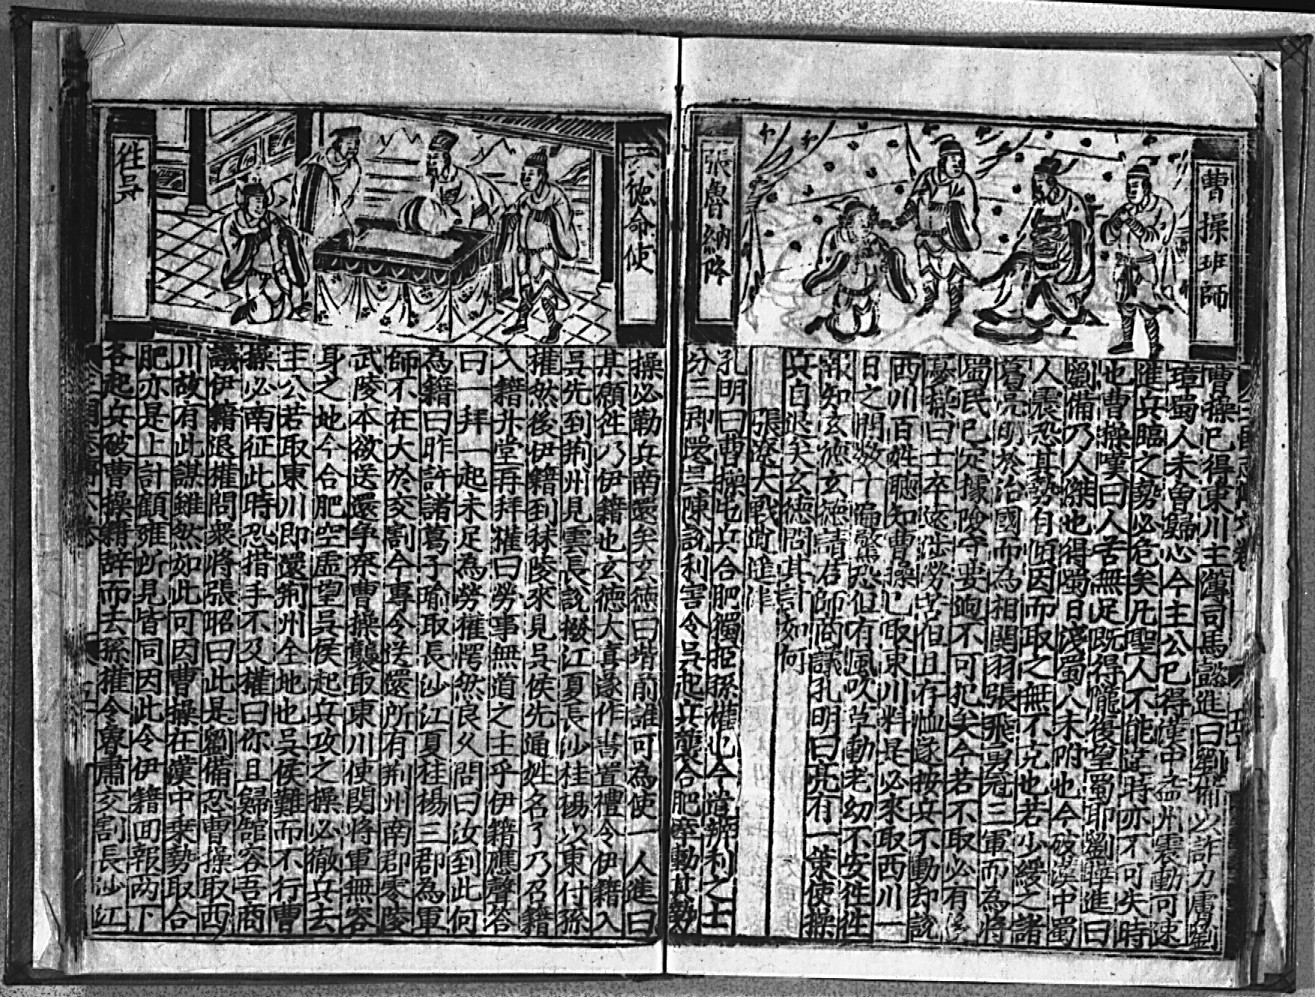 曹操班師
張魯納降
曹操已得東川主簿司馬懿進曰劉備以詐力虜劉
璋蜀人未曾歸心今主公已得漢中益州震動可速
進兵臨之勢必危矣凡聖人不能違時亦不可失時
也曹操嘆曰人苦無足既得隴復望蜀耶劉曄進曰
劉備乃人傑也得蜀日淺蜀人未附也今破漢中蜀
人震恐其勢自傾因而取之無不克也若少緩之諸
葛亮明於治國而為相関羽張飛勇冠三軍而為將
蜀民已定據險守要迥不可犯矣今若不取必有後
憂操曰士卒遠涉勞苦但且存恤遂按兵不動却說
西川百姓聽知曹操已取東川料是必來取西川一
日之間數十遍驚恐但有風吹草動老幼不安徃徃
報知玄德玄德請君師商議孔明曰亮有一策使操
兵自退矣玄德問其計如何
張遼大戰逍遙津
孔明曰曹操屯兵合肥獨拒孫權也今遣辨利之士
分三郡還吳陳說利害令吳起兵襲合肥牽動其勢
德命使
徃吳
操必勒兵南還矣玄德曰堦前誰可為使一人進曰
某願徃乃伊籍也玄德大喜遂作書置禮令伊籍入
吳先到荊州見雲長說撥江夏長沙桂楊以東付孫
權然後伊籍到秣陵來見吳侯先通姓名了乃召籍
入籍升堂再拜權曰勞事無道之主乎伊籍應聲答
曰一拜一起未足為勞權愕然良久問曰汝到此何
為籍曰昨許諸葛子瑜取長沙江夏桂楊三郡為軍
師不在大於交割今專令送還所有荊州南郡零陵
武陵本欲送還爭奈曹操襲取東川使関將軍無容
身之地今合肥空虛望吳侯起兵攻之操必徹兵去
主公若取東川即還荊州全地也吳侯難而不行曹
操必南征此時恐措手不及權曰你且歸舘容吾商
議伊籍退權問衆將張昭曰此是劉備恐曹操取西
川故有此謀雖然如此可因曹操在漢中乗勢取合
肥亦是上計顧雍所見皆同因此令伊籍囬報两下
各起兵破曹操籍辞而去孫權令魯肅交割長沙江